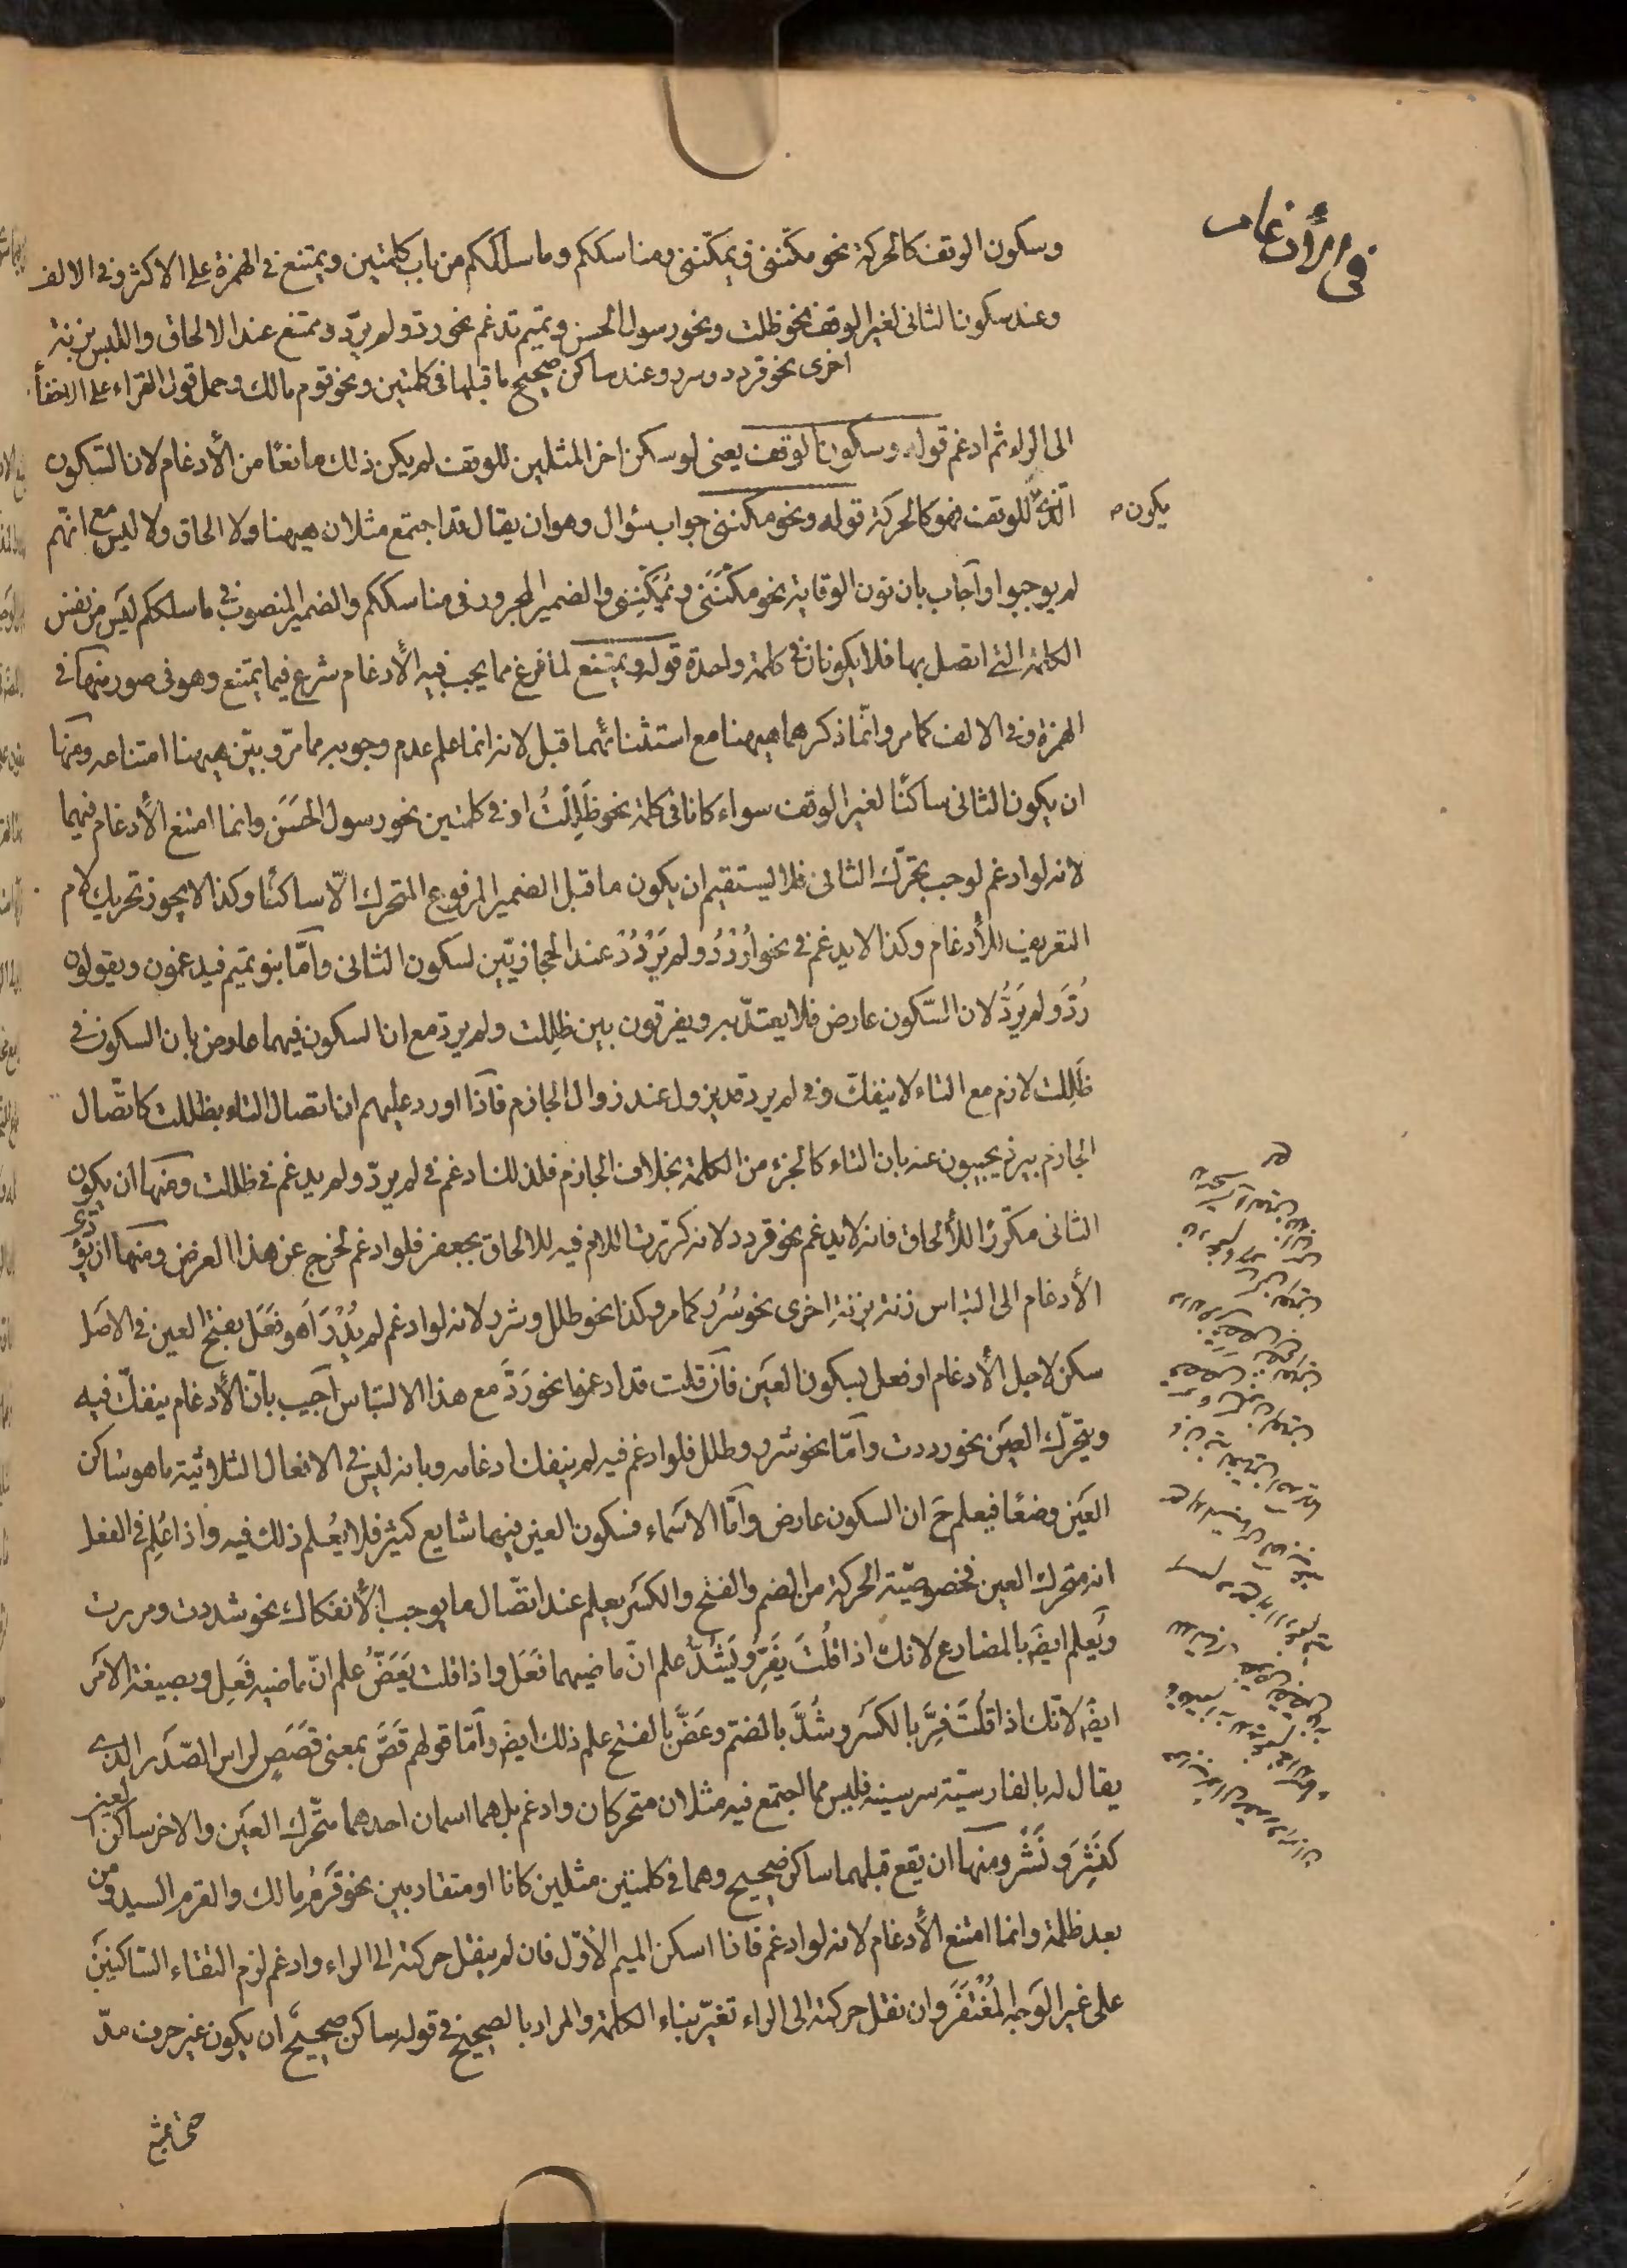 في الأدغام
وسكون الوقف كالحركة نحو مكّننى ويمكّننى ومناسككم وما سلككم من باب كلمتين ويمتنع في الهمزة على الاكثر وفي الالف
وعند سكون الثانى لغير الوقف نحو ظللت ونحو رسول الحسن وتميم تدغم نحو ردّ ولم يردّ ويمتنع عند الالحاق واللبس بزنة
اخرى نحو قردد وسرر وعند ساكن صحيح ما قبلها في كلمتين ونحو قوم مالك وحمل قول القراء على الاخفاء
الى الراء ثم ادغم قوله وسكون الوقف يعنى لو سكن اخر المثلين للوقف لم يكن ذلك مانعًا من الأدغام لان السّكون
الّذى للوقف فهو كالحركة قوله ونحو مكننى جواب سؤال وهو ان يقال قد اجتمع مثلان ههنا ولا الحاق ولا لبس مع انّهم
يكون
لم يوجبوا وآجاب بان نون الوقاية نحو مكّننى ويمكّننى والضمير المجرور في مناسككم والضمير المنصوب في ما سلككم ليس من نفس
الكلمة التى اتصل بها فلا يكونان في كلمة واحدة قوله ويمتنع لما فرغ مما يجب فيه الأدغام شرع فيما يمتنع وهو في صور منها في
الهمزة وفي الالف كما مر وانّما ذكرهما ههنا مع استثنائهما قبل لانه انما علم عدم وجوبه مما مرّ وبيّن ههنا امتناعه ومنها
ان يكون الثانى ساكنًا لغير الوقف سواء كانا في كلمة نحو ظَلِلْتُ او في كلمتين نحو رسول الحَسَن وانما امتنع الأدغام فيهما
لانه لو ادغم لوجب تحرّك الثانى فلا يستقيم ان يكون ما قبل الضمير المرفوع المتحرك الّا ساكنًا وكذا لا يجوز تحريك لام
التعريف للأدغام وكذا لا يدغم في نحو اُرْدُدْ ولم يَرْدُدْ عند الحجازيّين لسكون الثانى وآمّا بنو تميم فيدغمون ويقولون
رُدَّ ولم يَرُدَّ لان السّكون عارض فلا يعتدّ به ويفرقون بين ظللت ولم يردّ مع ان السكون فيهما عارض بان السكون في
ظَلِلت لازم مع التاء لا ينفكّ وفي لم يردّ قد يزول عند زوال الجازم فآذا اورد عليهم ان اتصال التاء بظللت كاتّصال
الجازم بيرد يجيبون عنه بان التاء كالجزء من الكلمة بخلاف الجازم فلذلك ادغم في لم يردّ ولم يدغم في ظللت ومنها ان يكون
الثانى مكرّرًا للألحاق فانه لا يدغم نحو قردد لانه كررت اللام فيه للالحاق بجعفر فلو ادغم لخرج عن هذا الغرض ومنها ان يؤدّى
الأدغام الى التباس زنة بزنة اخرى نحو سُرُر كما مر وكذا نحو طلل وشرر لانه لو ادغم لم يُدْرَ اَهو فَعَل بفتح العين في الاصل
سكن لاجل الأدغام او فعل بسكون العَين فآن قلت قد ادغموا نحو رَدَّ مع هذا الالتباس آجيب بانّ الأدغام ينفكّ فيه
ويتحرّك العين نحو رددت وآمّا نحو شرر وطلل فلو ادغم فيه لم ينفك ادغامه وبانه ليس في الافعال الثلاثية ما هو ساكن
العَين وضعًا فيعلم حَ ان السكون عارض وآمّا الاسماء فسكون العين فيها شايع كثير فلا يُعْلم ذلك فيه واذا عُلِم في الفعل
انه متحرك العين فخصوصيّة الحركة من الضم والفتح والكسر يعلم عند اتّصال ما يوجب الأنفكاك نحو شددت ومررت
ويَعلم ايضً بالمضارع لانك اذا قلتَ يَفِرّ ويَشُدُّ علم انّ ماضيهما فَعَل واذا قلت يَعَضُّ علم انّ ماضيه فَعِل وبصيغة الامر
ايضً لانّك اذا قُلتَ فِرَّ بالكسر وشُدَّ بالضمّ وعَضَّ بالفتح علم ذلك ايضً وآمّا قولهم قَصّ بمعنى قَصَصٍ لراس الصّدر الذى
يقال له بالفارسيّة سرسينه فليس مما اجتمع فيه مثلان متحركان وادغم بل هما اسمان احدهما متحّرك العَين والاخر ساكن العين
كنَشَرَ ونَشْر ومنها ان يقع قبلهما ساكن صحيح وهما في كلمتين مثلين كانا او متقاربين نحو قَرْمُ مالك والقرم السيد ومن
بعد ظلمة وانما امتنع الأدغام لانه لو ادغم فاذا اسكن الميم الأوّل فان لم ينقل حركته الى الراء وادغم لزم التقاء السّاكنين
على غير الوَجه المُغْتَفَر وان نقل حركته الى الراء تغيّر بناء الكلمة والمراد بالصحيح في قوله ساكن صحيح ان يكون غير حرف مدّ